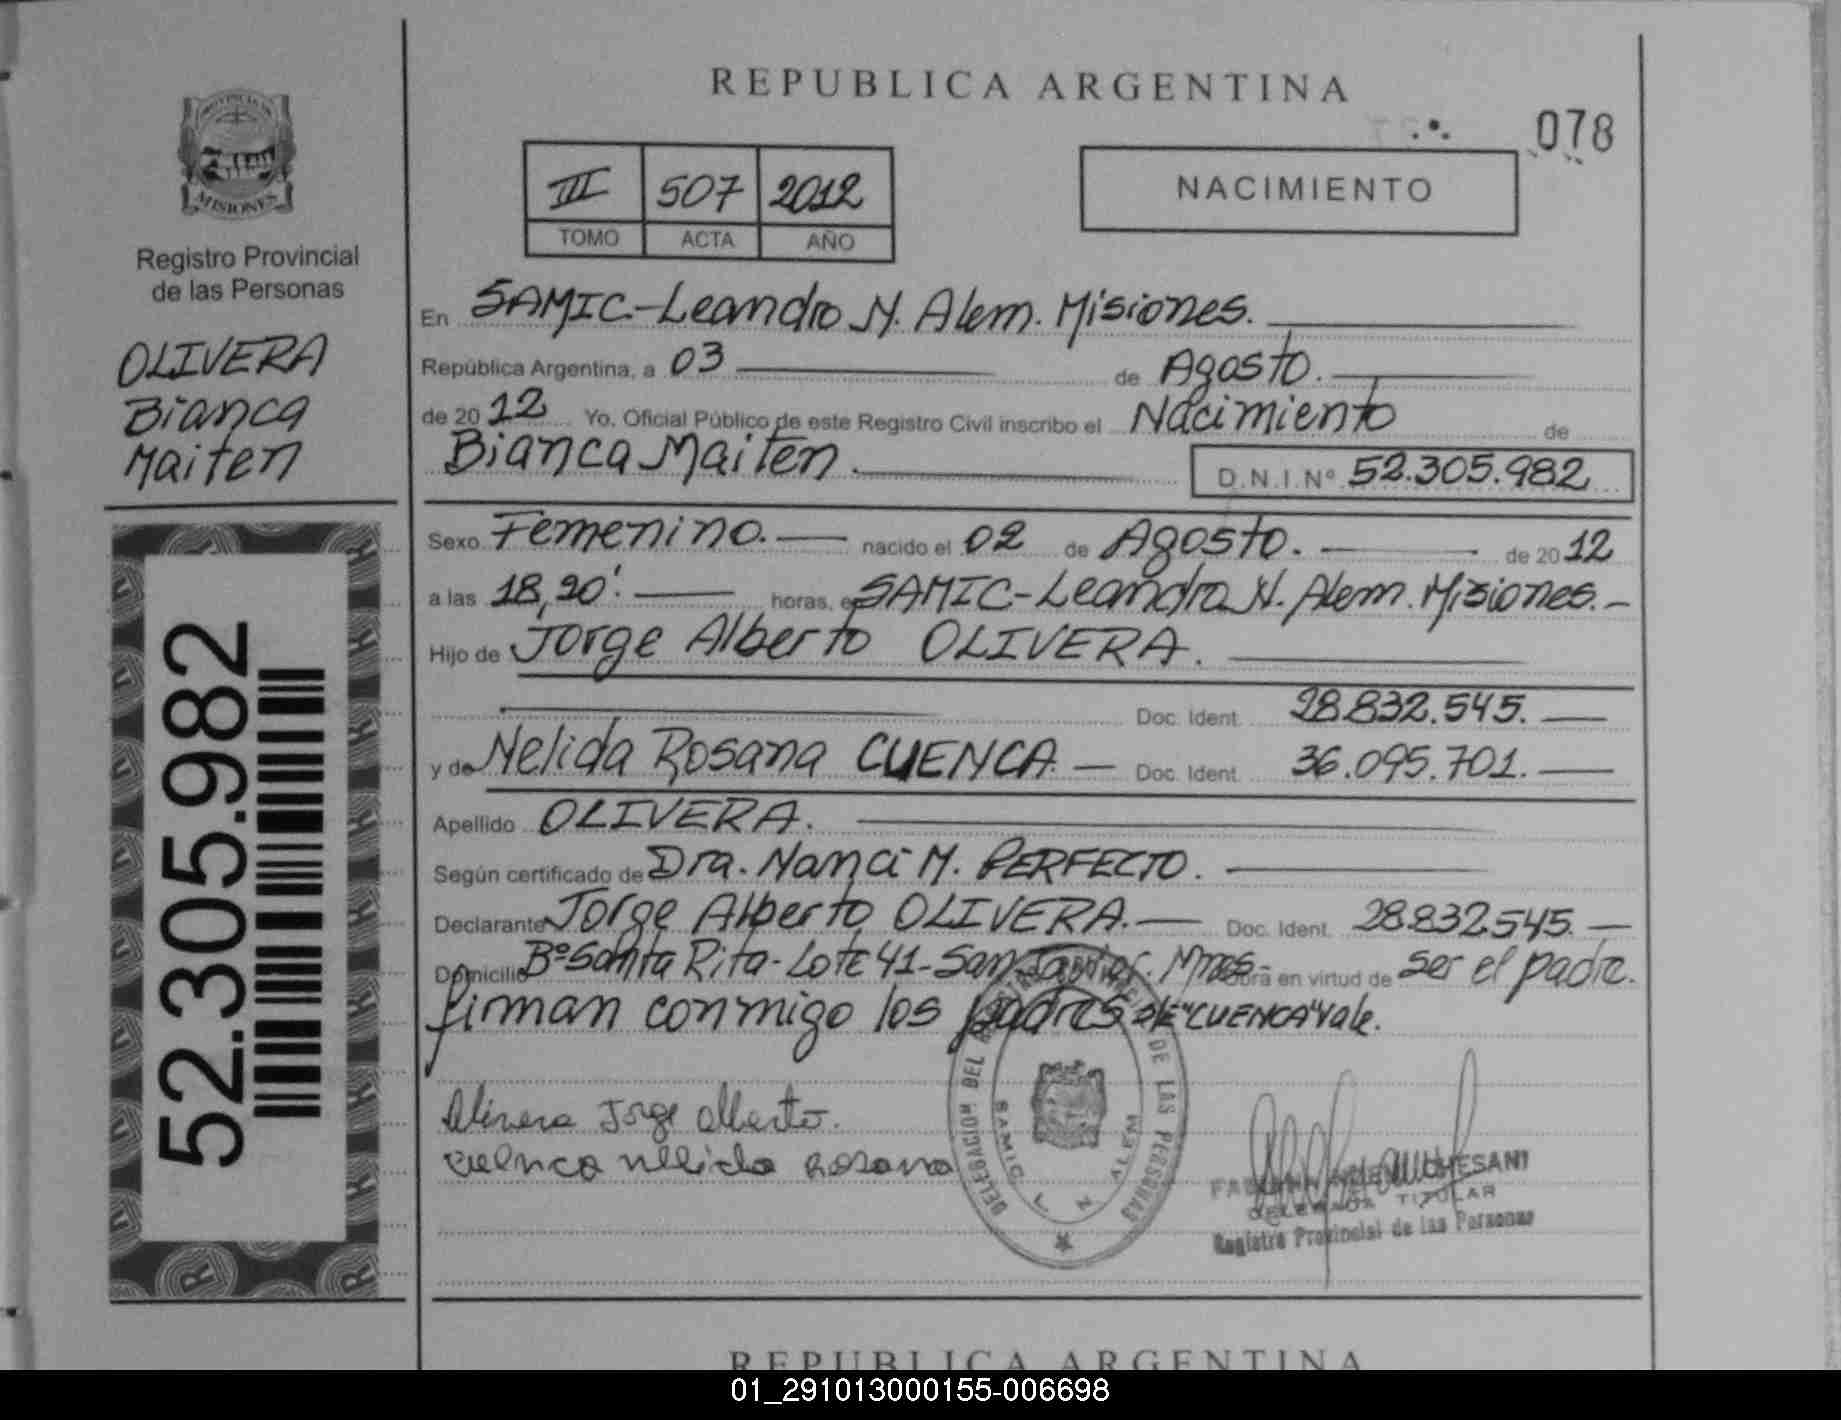 REPUBLICA ARGENTINA
078
PROVINCIA DE
MISIONES
Registro Provincial
de las Personas
OLIVERA
Bianca
Maiten
52.305.982
III 507 2012
TOMO ACTA AÑO
NACIMIENTO
En SAMIC-Leandro N. Alem. Misiones.
República Argentina, a 03 de Agosto.
de 2012 Yo, Oficial Público de este Registro Civil inscribo el Nacimiento de
Bianca Maiten. D.N.I.Nº 52.305.982
Sexo Femenino. nacido el 02 de Agosto. de 2012
a las 18,20'. horas, en SAMIC-Leandro N. Alem. Misiones.-
Hijo de Jorge Alberto OLIVERA.
Doc. Ident. 28.832.545.
y de Nelida Rosana CUENCA. Doc. Ident. 36.095.701.
Apellido OLIVERA.
Según certificado de Dra. Nanci M. PERFECTO.
Declarante Jorge Alberto OLIVERA. Doc. Ident. 28.832.545.
Domicilio Bº Santa Rita-Lote 41-San Javier. Mnes- Obra en virtud de ser el padre.
firman conmigo los padres S/E "CUENCA" Vale.
Olivera Jorge Alberto.
Cuenca Nelida Rosana
DELEGACION DEL REGISTRO PROVINCIAL DE LAS PERSONAS
SAMIC L N ALEM
TITULAR
Registro Provincial de las Personas
REPUBLICA ARGENTINA
01_291013000155-006698